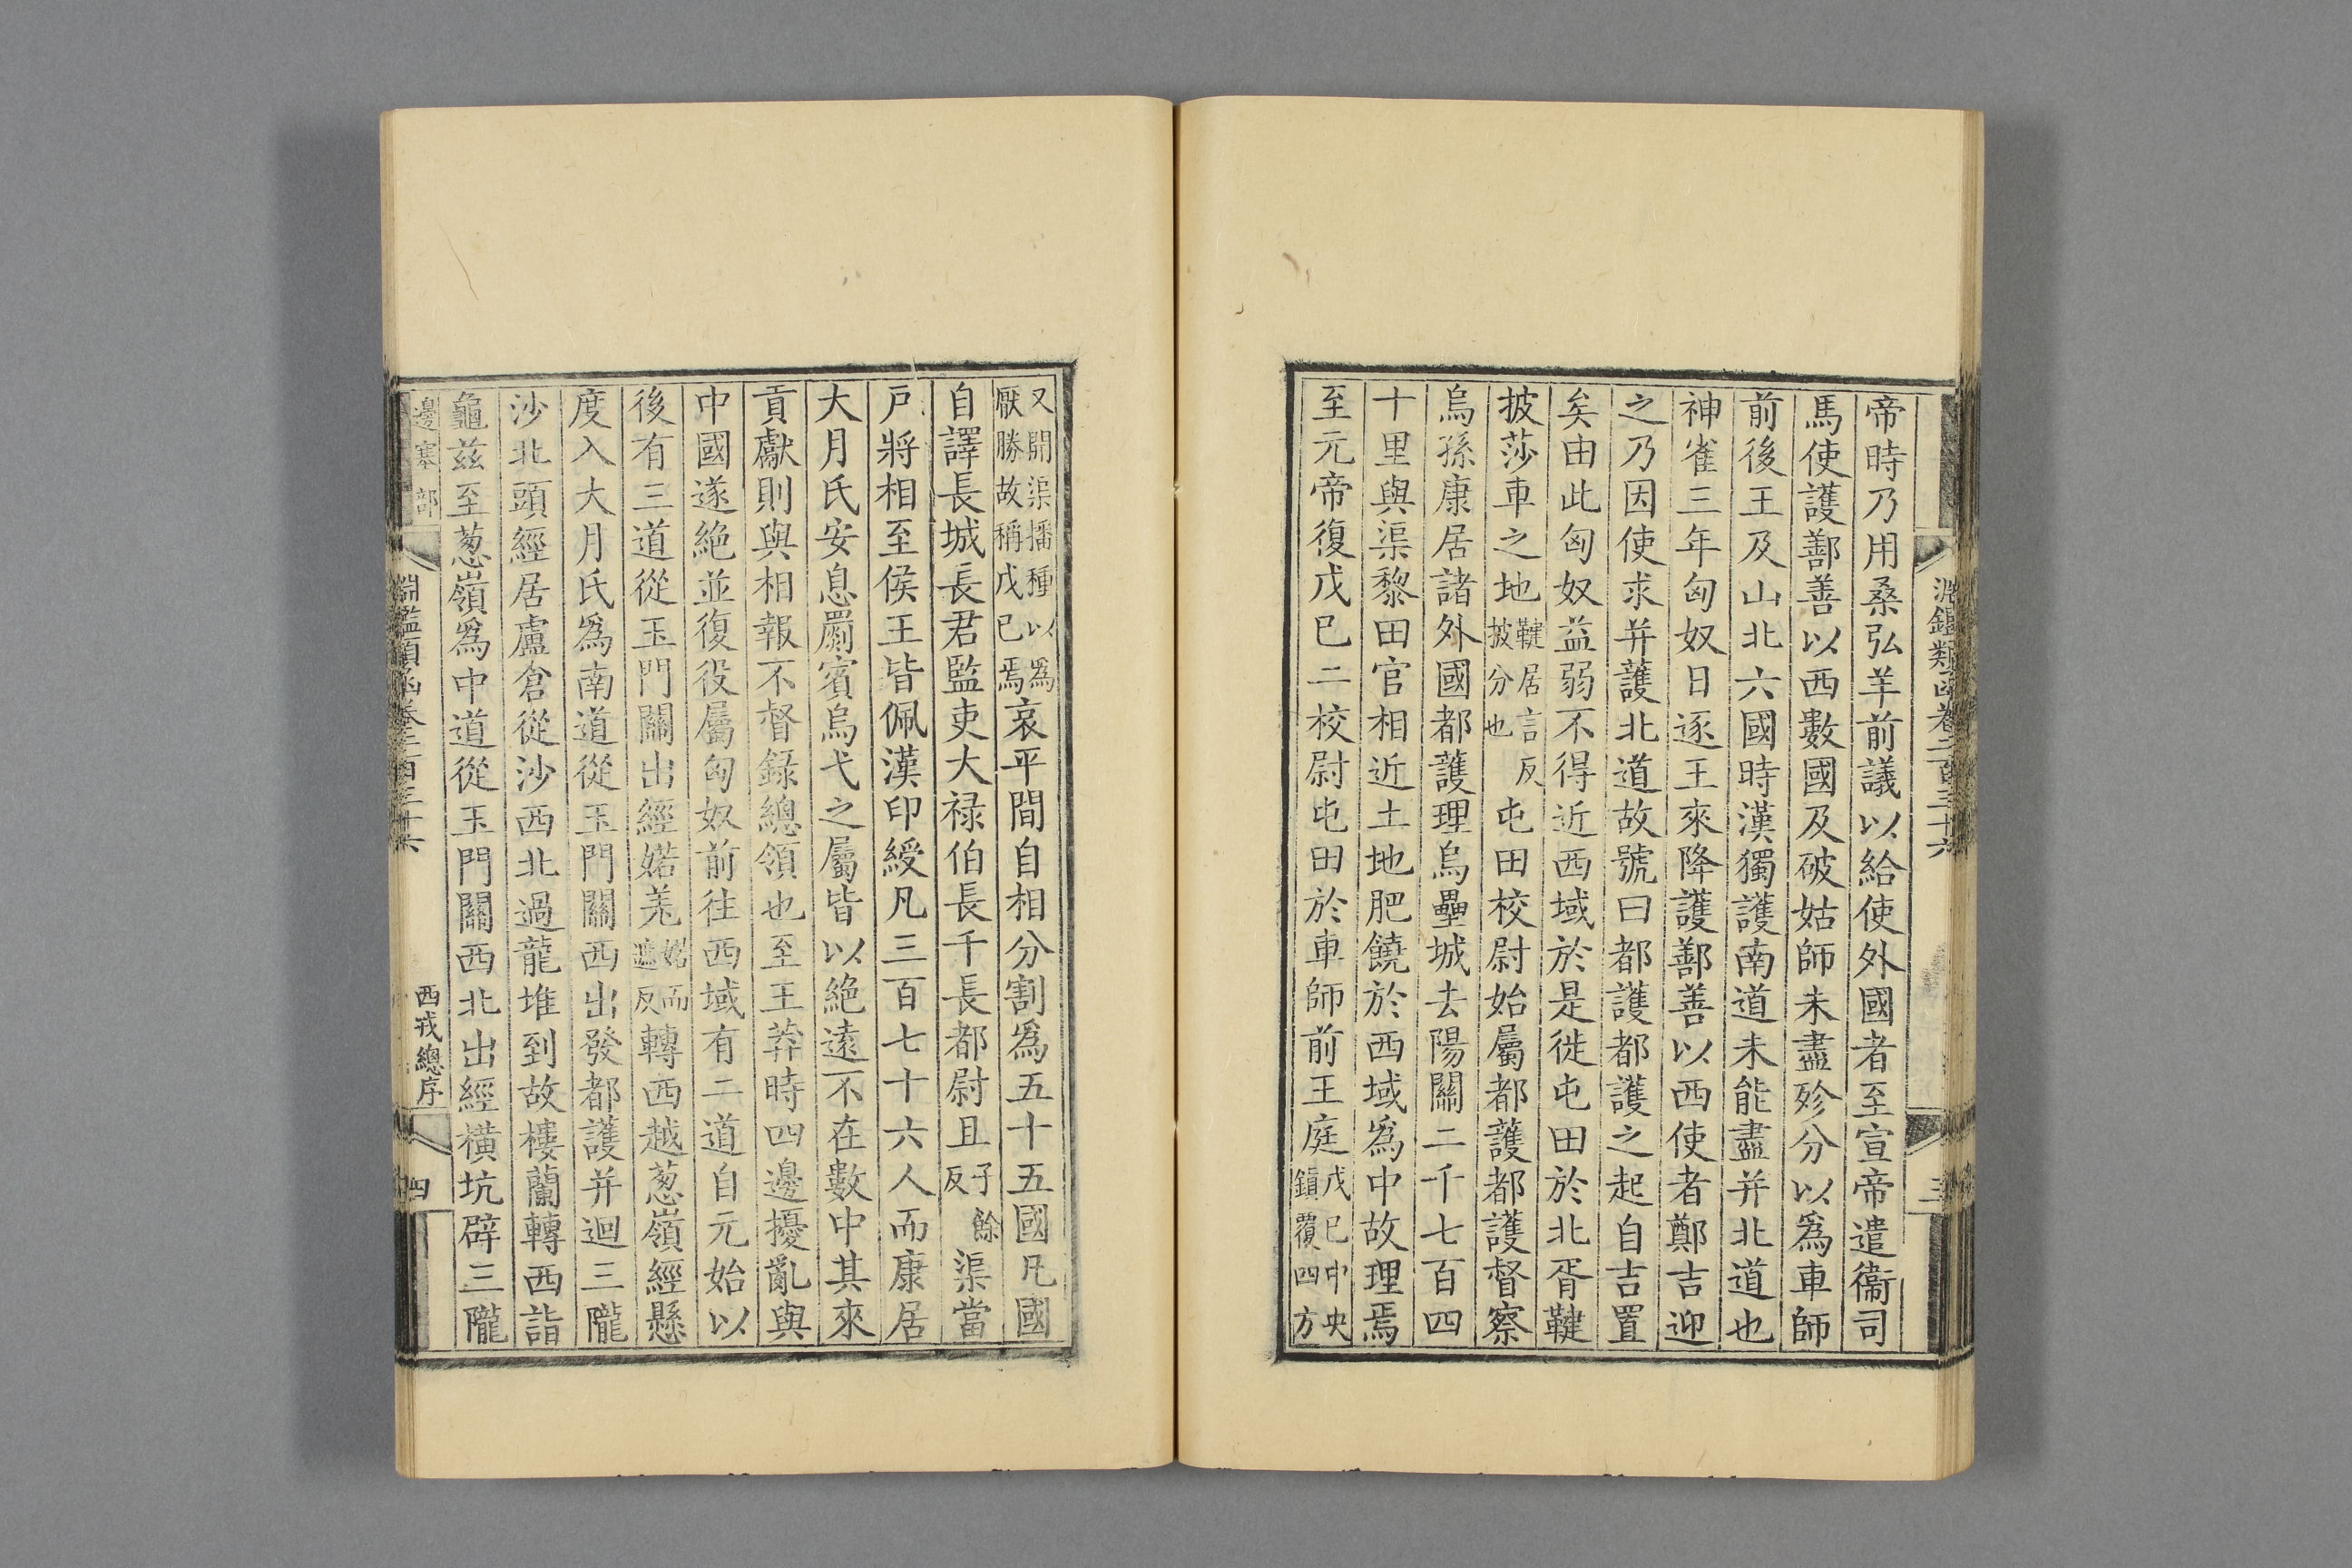 淵鑑類函卷二百三十六
三
帝時乃用桑弘羊前議以給使外國者至宣帝遣衞司
馬使護鄯善以西數國及破姑師未盡殄分以爲車師
前後王及山北六國時漢獨護南道未能盡并北道也
神雀三年匈奴日逐王來降護鄯善以西使者鄭吉迎
之乃因使求并護北道故號曰都護都護之起自吉置
矣由此匈奴益弱不得近西域於是徙屯田於北胥鞬
披莎車之地鞬居言反披分也屯田校尉始屬都護都護督察
烏孫康居諸外國都護理烏壘城去陽關二千七百四
十里與渠黎田官相近土地肥饒於西域爲中故理焉
至元帝復戊巳二校尉屯田於車師前王庭戊巳中央鎮覆四方
又開渠播種以爲厭勝故稱戊巳焉哀平間自相分割爲五十五國凡國
自譯長城長君監吏大禄伯長千長都尉且子餘反渠當
戸將相至侯王皆佩漢印綬凡三百七十六人而康居
大月氏安息罽賓烏弋之屬皆以絶遠不在數中其來
貢獻則與相報不督録總領也至王莽時四邊擾亂與
中國遂絶並復役屬匈奴前往西域有二道自元始以
後有三道從玉門關出經婼羌婼而遮反轉西越葱嶺經懸
度入大月氏爲南道從玉門關西出發都護井迴三隴
沙北頭經居盧倉從沙西北過龍堆到故樓蘭轉西詣
龜兹至葱嶺爲中道從玉門關西北出經橫坑辟三隴
邊塞部
淵鑑類函卷二百三十六
西戎總序
四